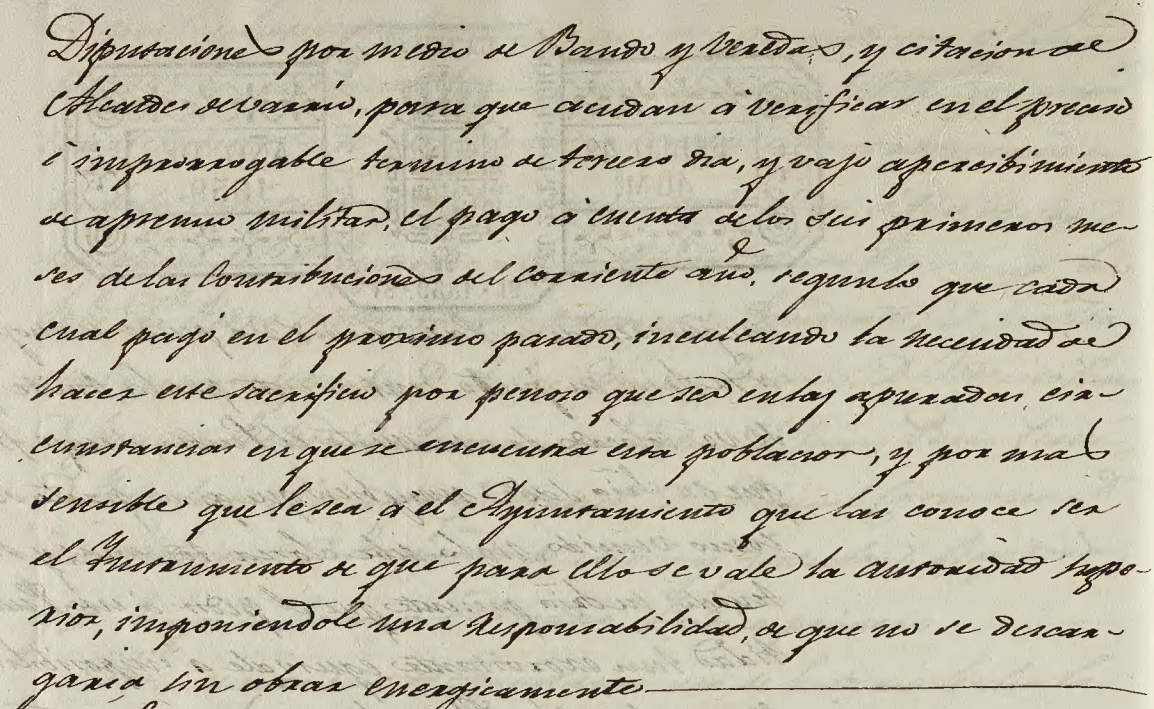 Diputaciones por medio de Bando y Veredas, y citacion de
Alcaldes de varrio, para que acudan á verificar en el preciso
é improrrogable termino de tercero dia, y vajo apercibimiento
de apremio militar, el pago á cuenta de los seis primeros me-
ses de las Contribuciones del corriente año, segun lo que cada
cual pagó en el proximo pasado, inculcando la necesidad de
hacer este sacrificio por penoso que sea en las apuradas cir-
cunstancias en que se encuentra esta poblacion, y por mas
sensible que le sea á el Ayuntamiento que las conoce ser
el Instrumento de que para ello se vale la autoridad supe-
rior, imponiendole una responsabilidad, de que no se descar-
garia sin obrar energicamente